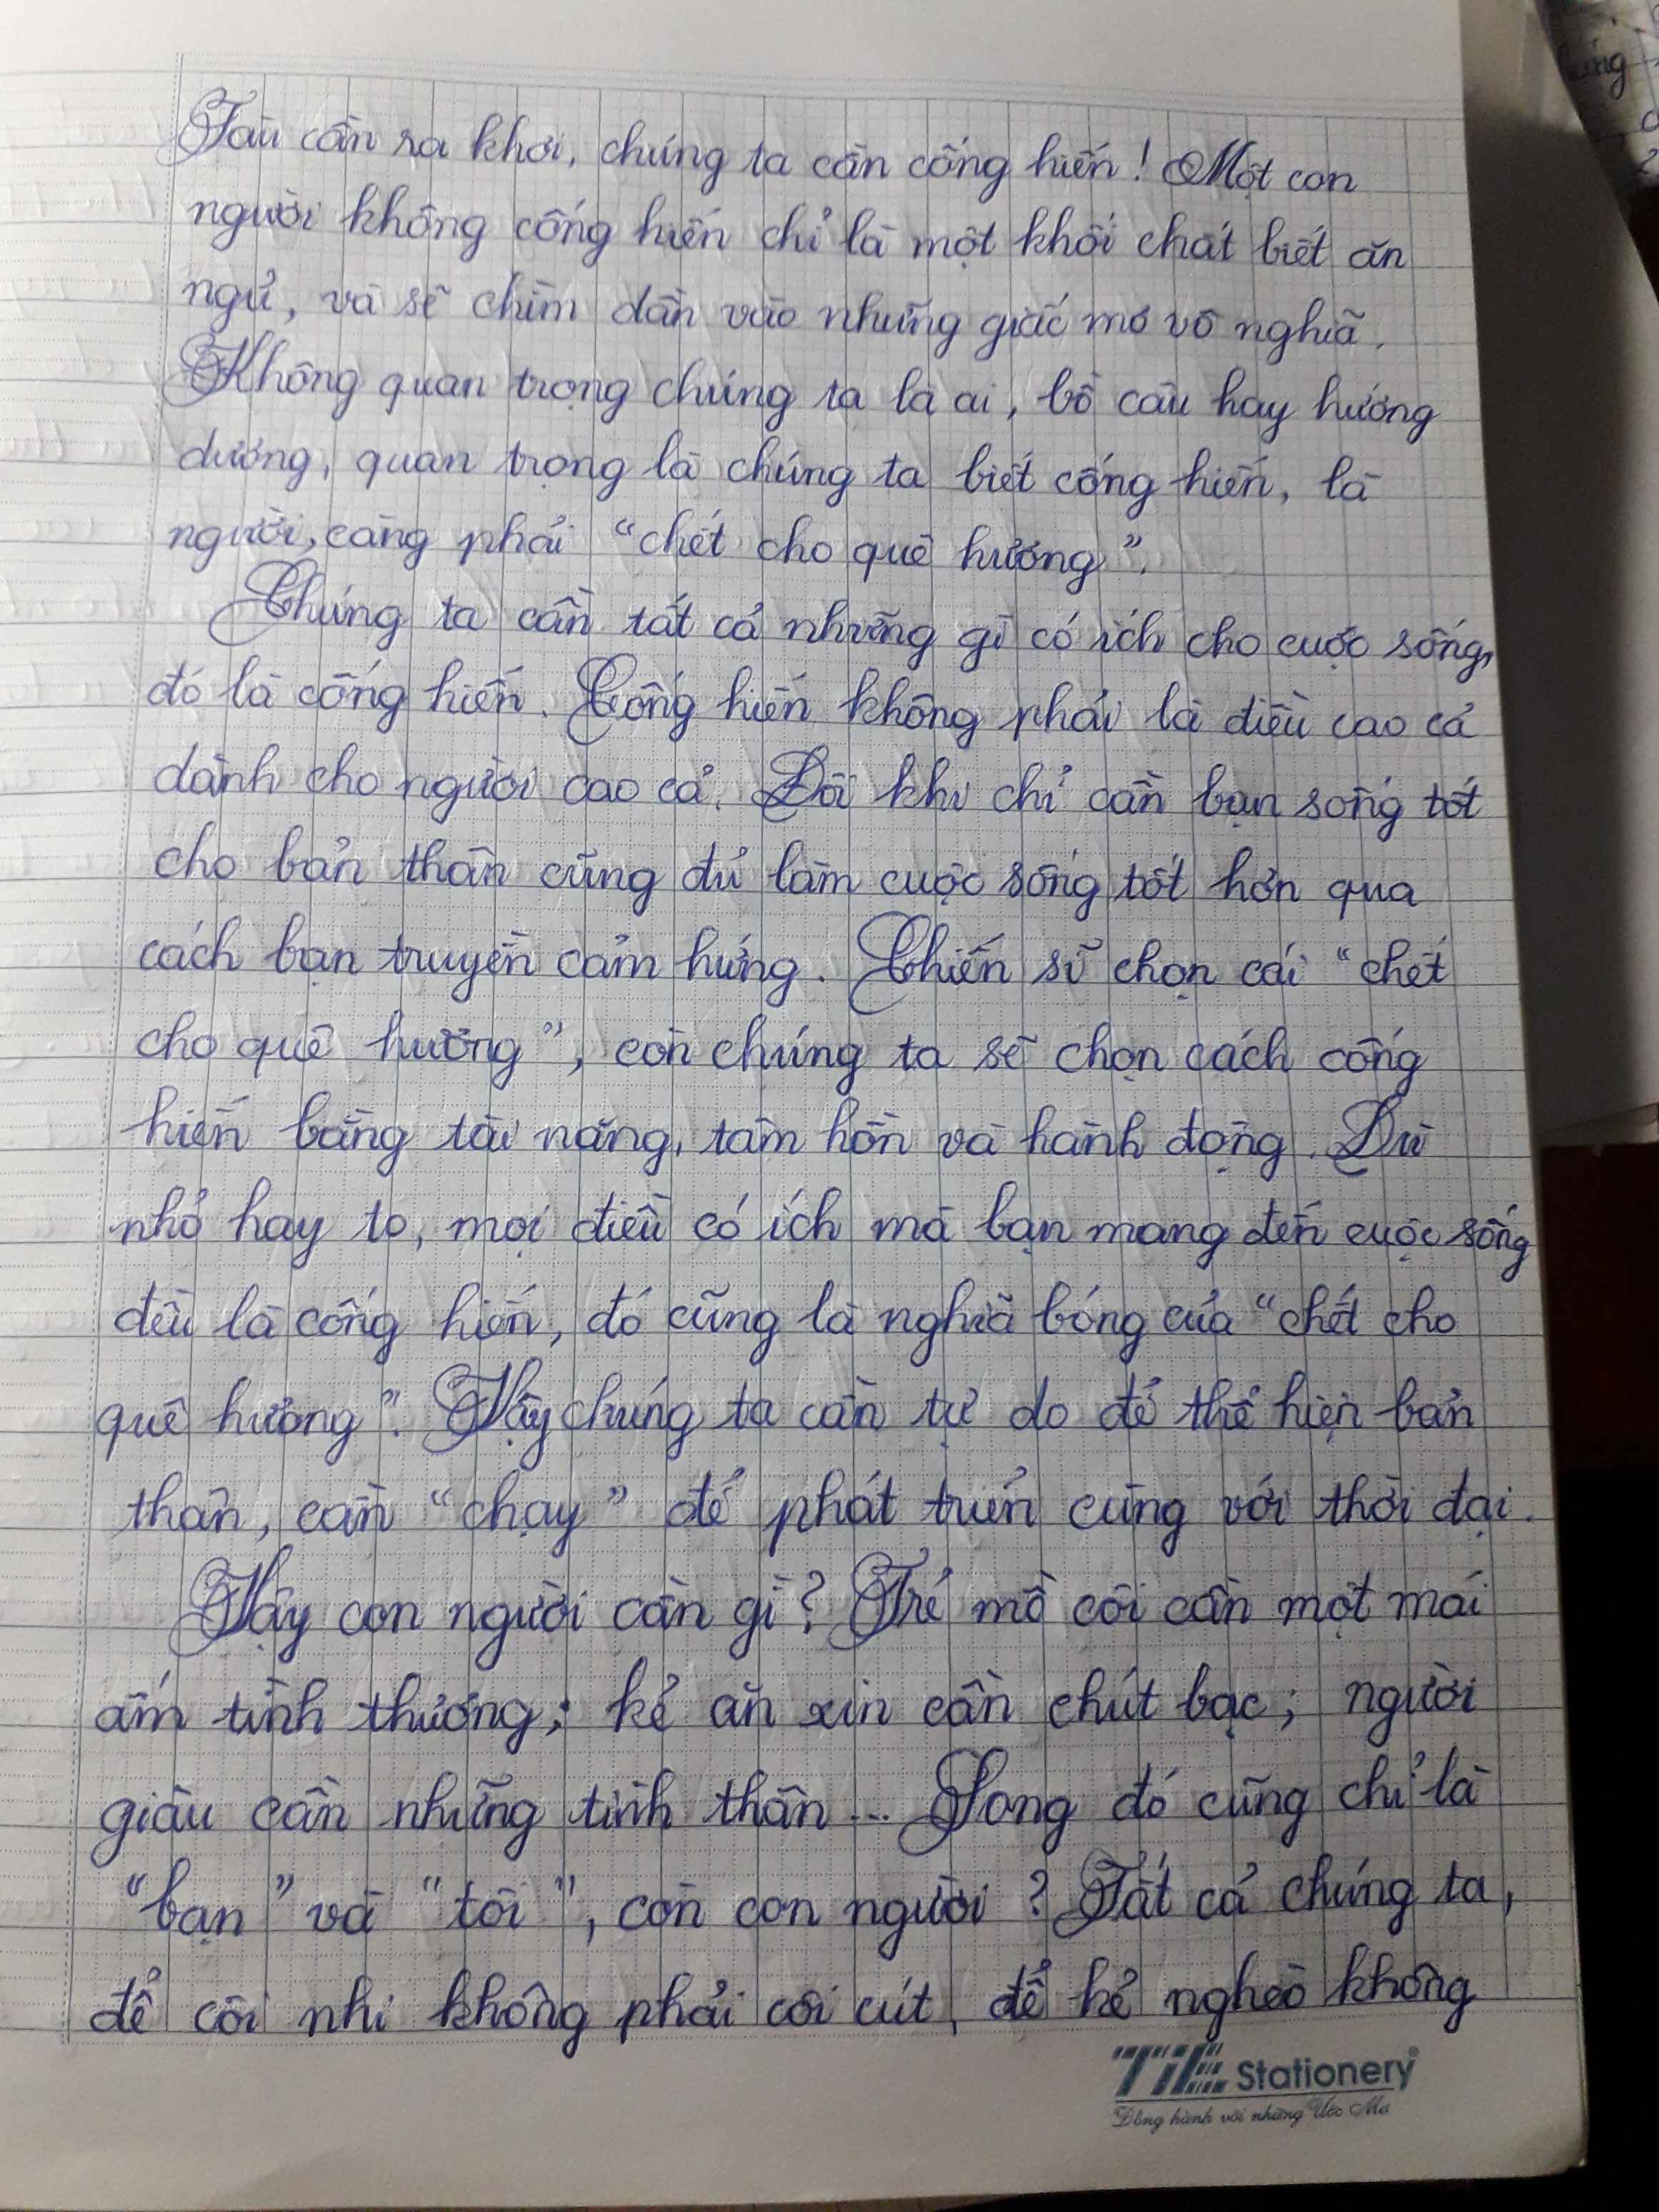 Tàu cần ra khơi, chúng ta cần cống hiến! Một con
người không cống hiến chỉ là một khối chất biết ăn
ngủ, và sẽ chìm dần vào những giấc mơ vô nghĩa.
Không quan trọng chúng ta là ai, bồ câu hay hướng
dương, quan trọng là chúng ta biết cống hiến, là
người, càng phải “chết cho quê hương”.
Chúng ta cần tất cả những gì có ích cho cuộc sống,
đó là cống hiến. Cống hiến không phải là điều cao cả
dành cho người cao cả. Đôi khi chỉ cần bạn sống tốt
cho bản thân cũng đủ làm cuộc sống tốt hơn qua
cách bạn truyền cảm hứng. Chiến sĩ chọn cái “chết
cho quê hương”, còn chúng ta sẽ chọn cách cống
hiến bằng tài năng, tâm hồn và hành động. Dù
nhỏ hay to, mọi điều có ích mà bạn mang đến cuộc sống
đều là cống hiến, đó cũng là nghĩa bóng của “chết cho
quê hương”. Vậy chúng ta cần tự do để thể hiện bản
thân, cần “chạy” để phát triển cùng với thời đại.
Vậy con người cần gì? Trẻ mồ côi cần một mái
ấm tình thương; kẻ ăn xin cần chút bạc; người
giàu cần những tình thân... Song đó cũng chỉ là
“bạn” và “tôi”, còn con người? Tất cả chúng ta,
để côi nhi không phải côi cút, để kẻ nghèo không
TTL Stationery
Đồng hành với những Ước Mơ